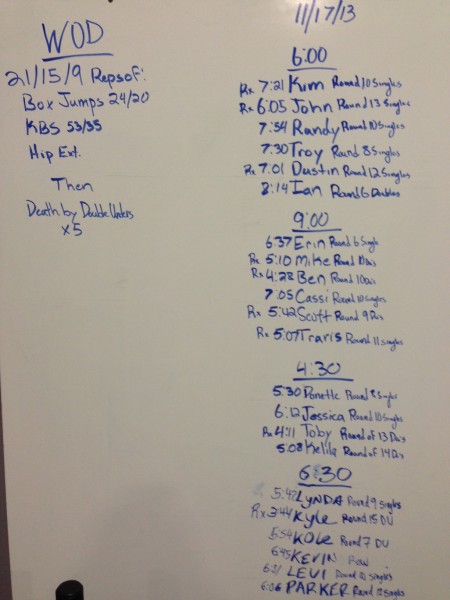 WOD
21/15/9 Reps of:
Box Jumps 24/20
KBS 53/35
Hip Ext.
Then
Death by Double Unders
x5
11/17/13
6:00
Rx 7:21 Kim Round 10 Singles
Rx 6:05 John Round 13 Singles
7:54 Randy Round 10 Singles
7:30 Troy Round 8 Singles
Rx 7:01 Dustin Round 12 Singles
8:14 Ian Round 6 Doubles
9:00
6:37 Erin Round 6 Single
Rx 5:10 Mike Round 10 Du's
Rx 4:28 Ben Round 10 Du's
7:05 Cassi Round 10 Singles
Rx 5:42 Scott Round 9 Du's
Rx 5:07 Travis Round 11 singles
4:30
5:30 Donette Round 8 Singles
6:12 Jessica Round 10 Singles
Rx 4:11 Toby Round of 13 Du's
5:08 Kelila Round of 14 Du's
6:30
5:42 LYNDA Round 9 Singles
Rx 3:44 Kyle Round 15 DU
5:54 KOLE Round 7 DU
6:45 KEVIN Row
LEVI Round singles
6:06 PARKER Round Singles